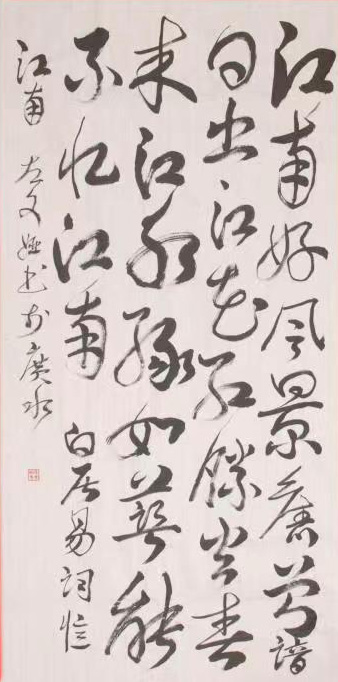 江南好风景旧曾谙
日出江花红胜火春
来江水绿如蓝能
不忆江南 白居易词忆
江南 左文娅书于广水